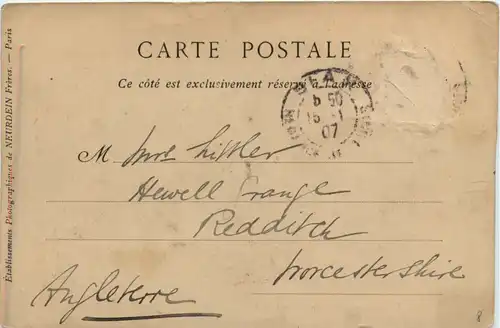 CARTE POSTALE
Ce côté est exclusivement réservé à l'adresse
5 50
15 - 1
07
M. Mrs Littler
Hewell Grange
Redditch
Worcestershire
Angleterre
Etablissements Photographiques de NEURDEIN Frères. — Paris
8